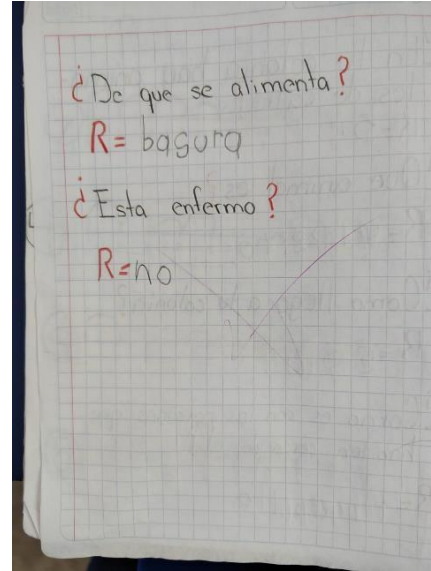 ¿De que se alimenta?
R= bagura
¿Esta enfermo?
R=no